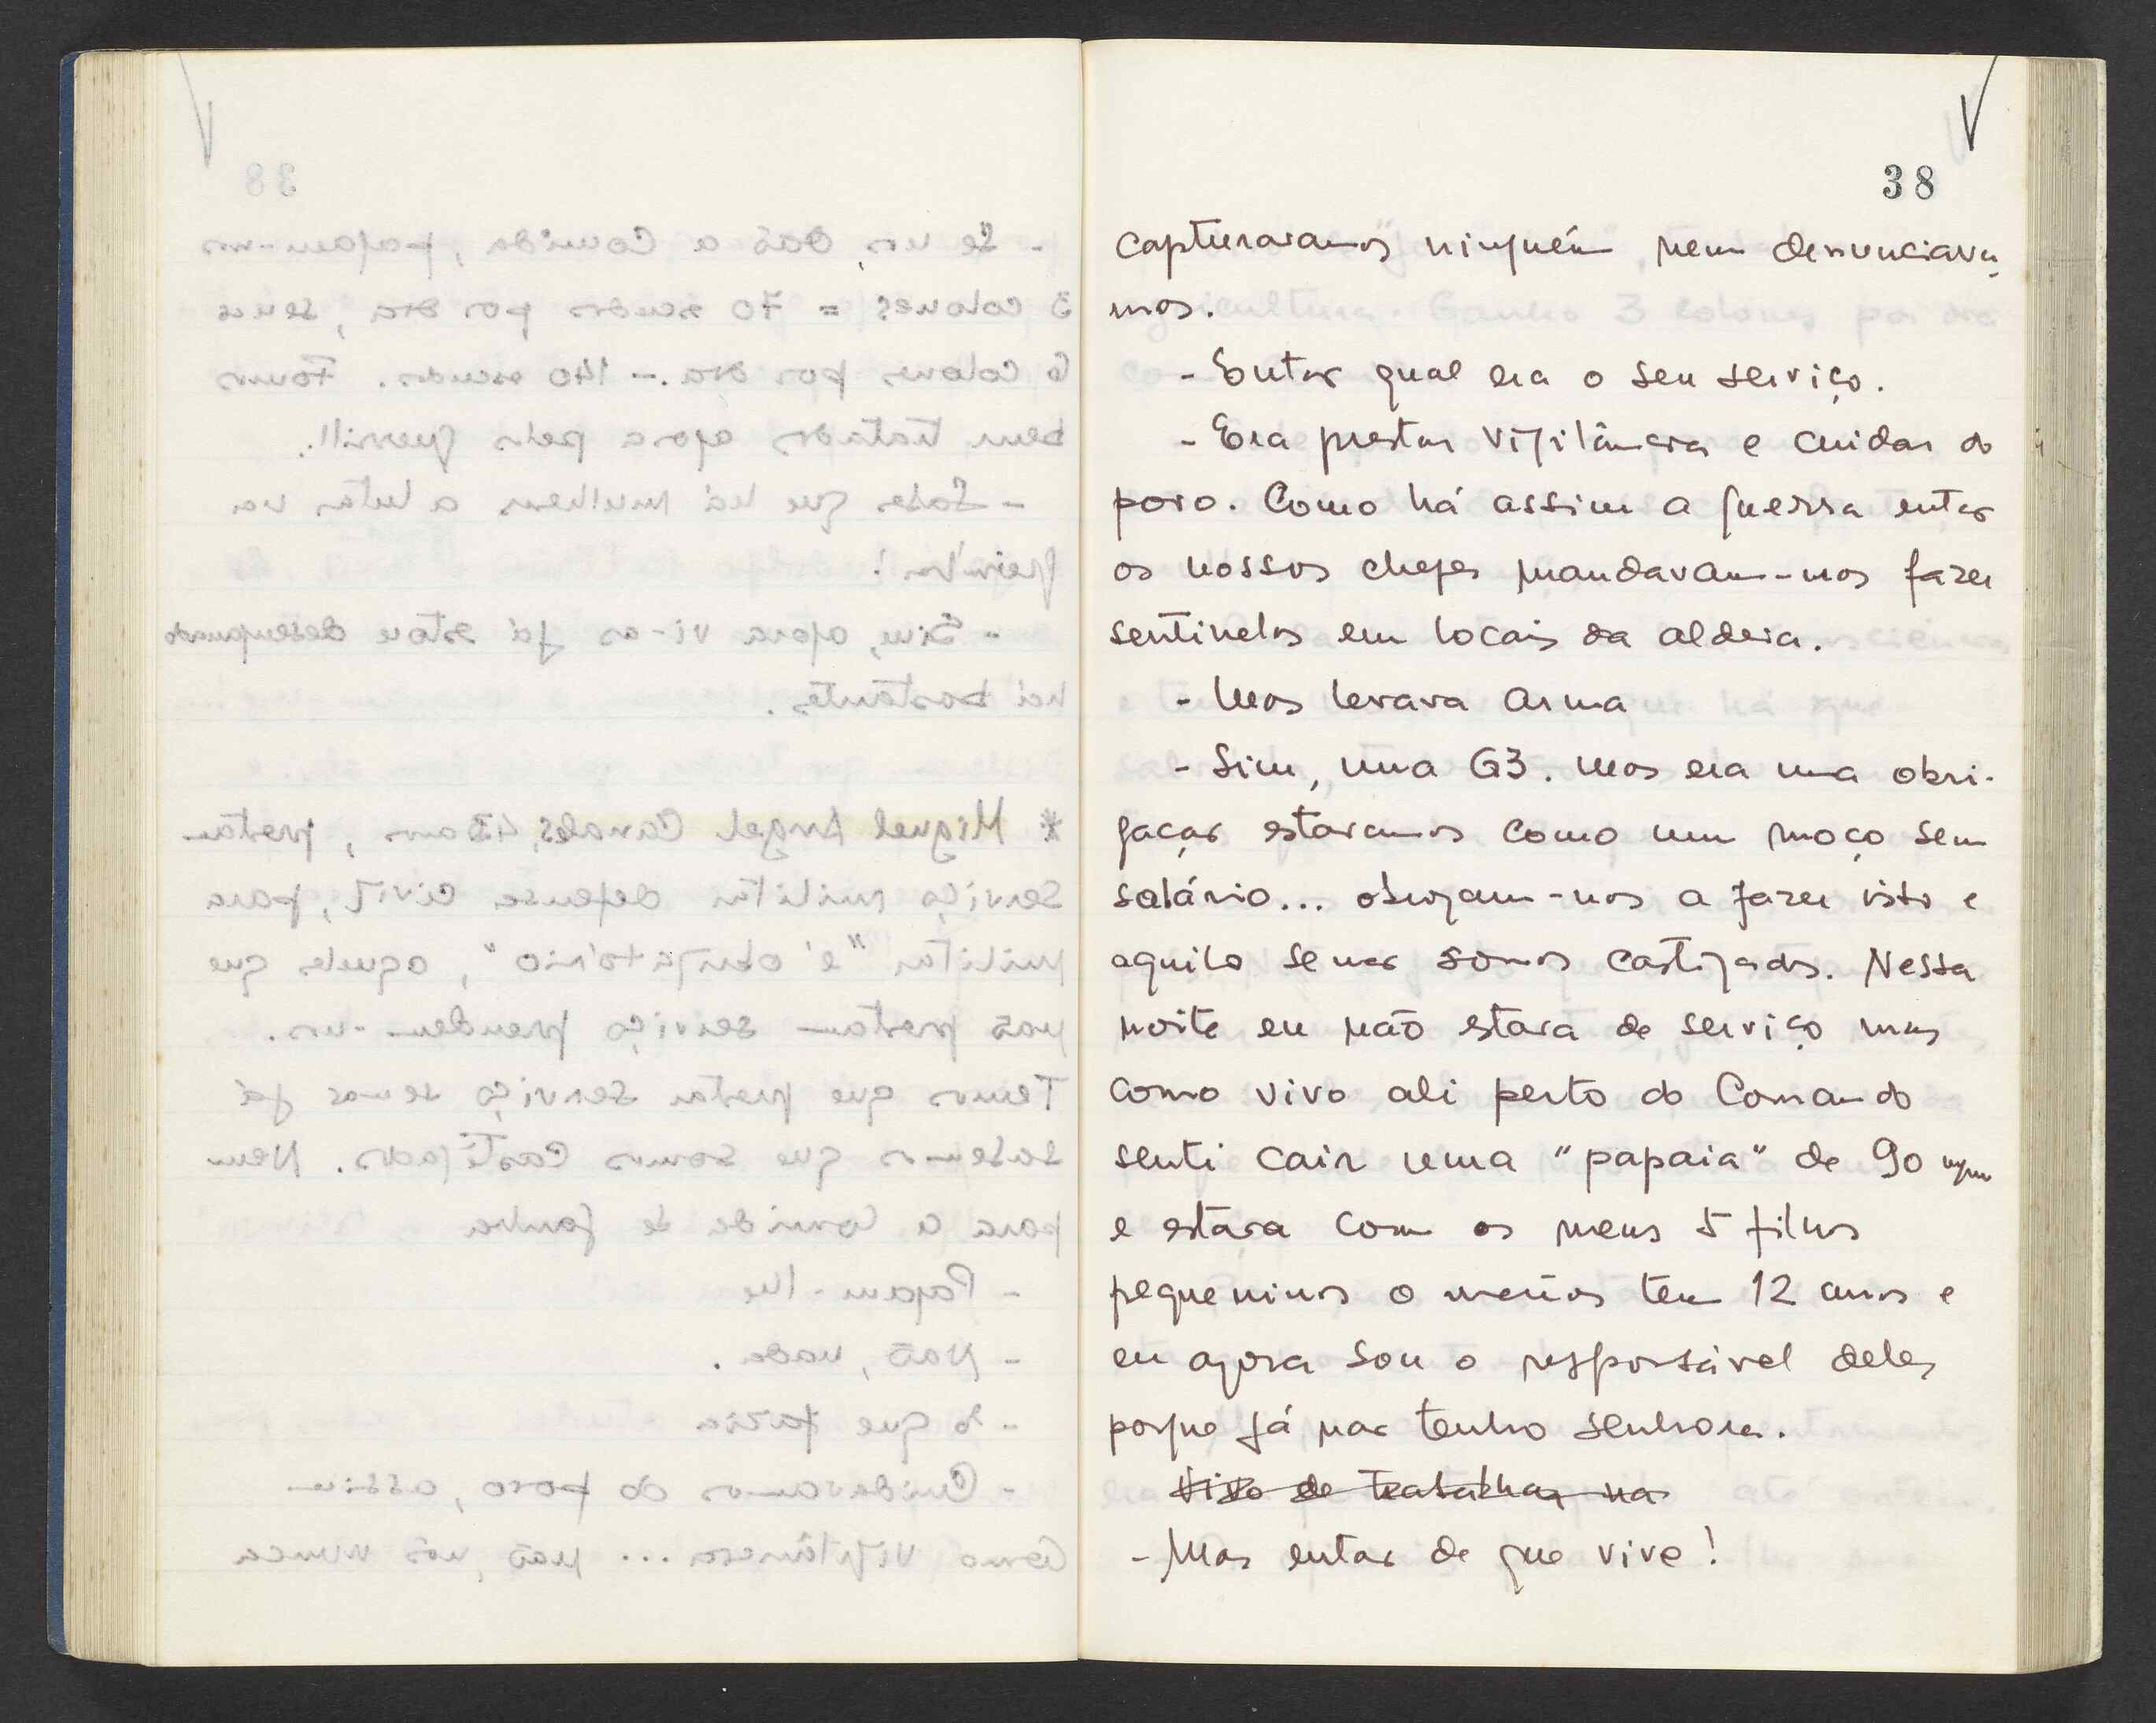 38
capturavamos ninguém nem denunciava
mos.
- Entao qual era o seu serviço.
- Era prestar vigilância e cuidar do
povo. Como há assim a guerra entao
os nossos chefes mandavam-nos fazer
sentinelas em locais da aldeia.
- Mas levava arma
- Sim, uma G3. Mas era uma obri-
gaçao estavamos como um moço sem
salário... obrigam-nos a fazer isto e
aquilo se nao somos castigados. Nessa
noite eu não estava de serviço mas
como vivo ali perto do Comando
senti cair uma "papaia" de 90 mm
e estava com os meus 5 filhos
pequeninos o menos tem 12 anos e
eu agora sou o responsável deles
porque já nao tenho senhora.
Vivo de trabalhar na
- Mas entao de que vive!